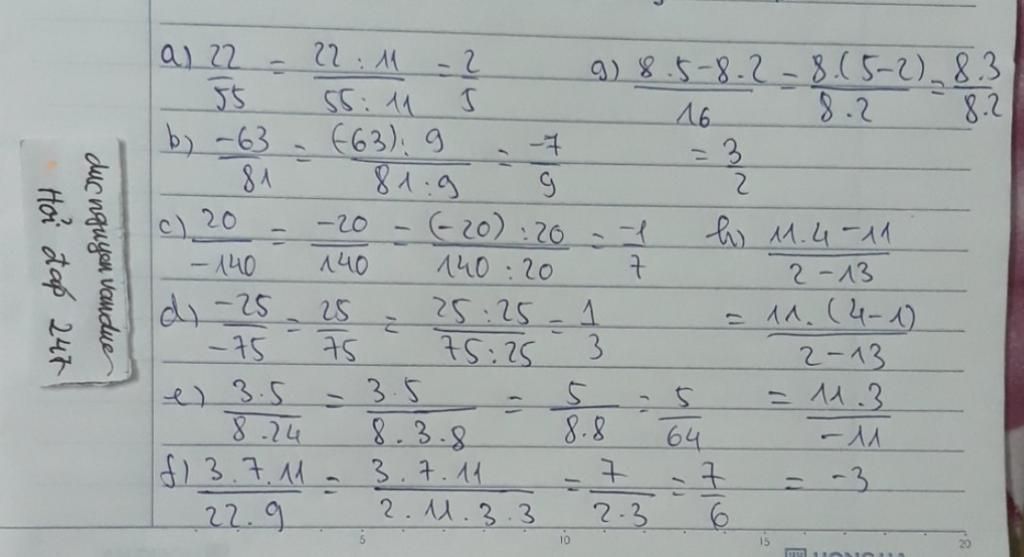 a) 22/55 = 22 : 11/55 : 11 = 2/5
b) -63/81 = (-63) : 9/81 : 9 = -7/9
c) 20/-140 = -20/140 = (-20) : 20/140 : 20 = -1/7
d) -25/-75 = 25/75 = 25 : 25/75 : 25 = 1/3
e) 3.5/8.24 = 3.5/8.3.8 = 5/8.8 = 5/64
f) 3.7.11/22.9 = 3.7.11/2.11.3.3 = 7/2.3 = 7/6
g) 8.5-8.2/16 = 8.(5-2)/8.2 = 8.3/8.2
= 3/2
h) 11.4-11/2-13
= 11.(4-1)/2-13
= 11.3/-11
= -3
ducnguyenvanduc
Hỏi đáp 247
5 10 15 20